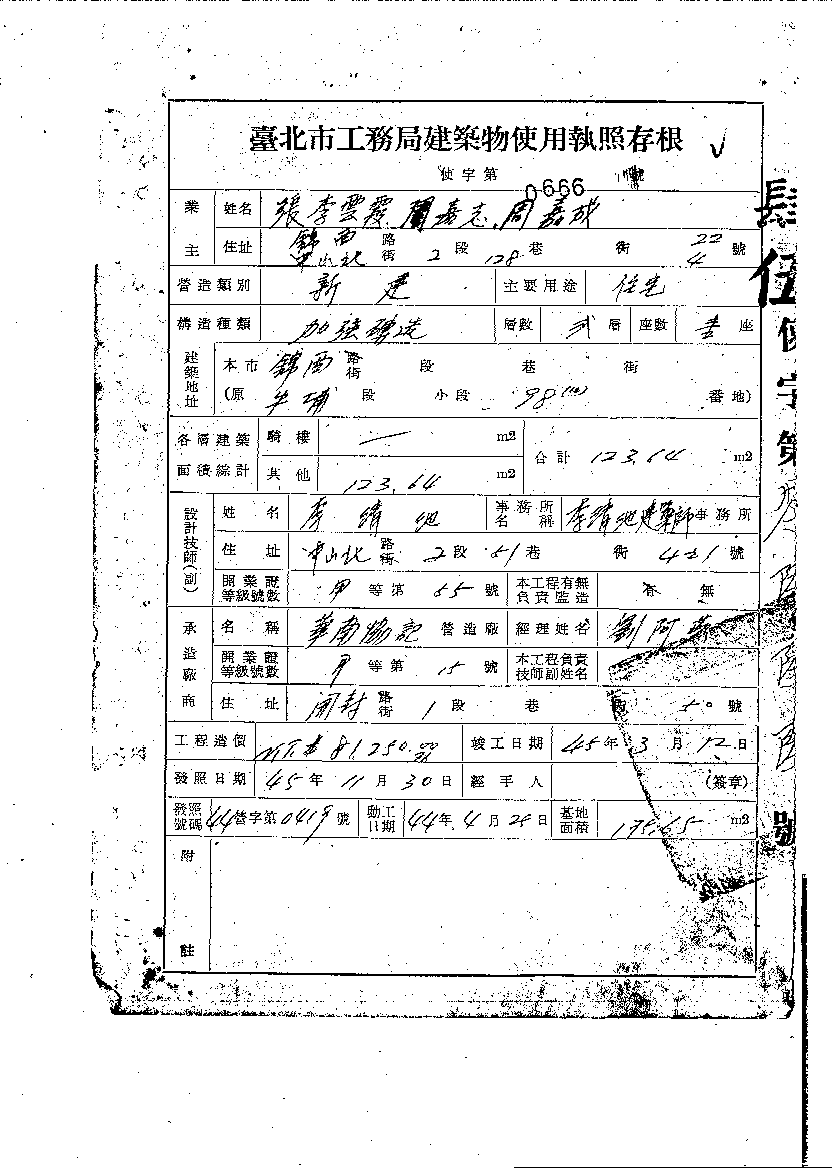 臺北市工務局建築物使用執照存根
使字第 0666
業主 姓名 張李雲霞 周嘉志、周嘉成
住址 錦西 中山北 路街 2 段 128 巷 街 22 4 號
營造類別 新建 主要用途 住宅
構造種類 加强磚造 層數 弍 層 座數 壹 座
建築地址 本市 錦西 路街 段 巷 街
(原 牛埔 段 小段 98 番地)
各層建築面積綜計 騎樓 — m2 合計 123.64 m2
其他 123.64
設計技師(副) 姓名 李靖 事務所名稱 李靖 建築師事務所
住址 中山北 路街 2 段 81 巷 街 號
開業證等級號數 甲 等第 55 號 本工程有無負責監造 有 無
承造廠商 名稱 華南協記 營造廠 經理姓名 劉阿
開業證等級號數 甲 等第 15 號 本工程負責技師副姓名
住址 開封 路街 1 段 巷 50 號
工程造價 NT$ 81,250.00 竣工日期 45 年 3 月 12 日
發照日期 45 年 11 月 30 日 經手人 (簽章)
發照號碼 44 營字第 0419 號 動工日期 44 年 4 月 28 日 基地面積 m2
附註
肆伍使字第 號